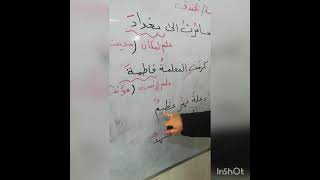 سافرت الى بغدادَ
علم لمكان (مدينة
كرمت المعلمةُ فاطمةَ
علم لإنسان (مؤنث
دجلة نهرٌ عظيمٌ
InShOt